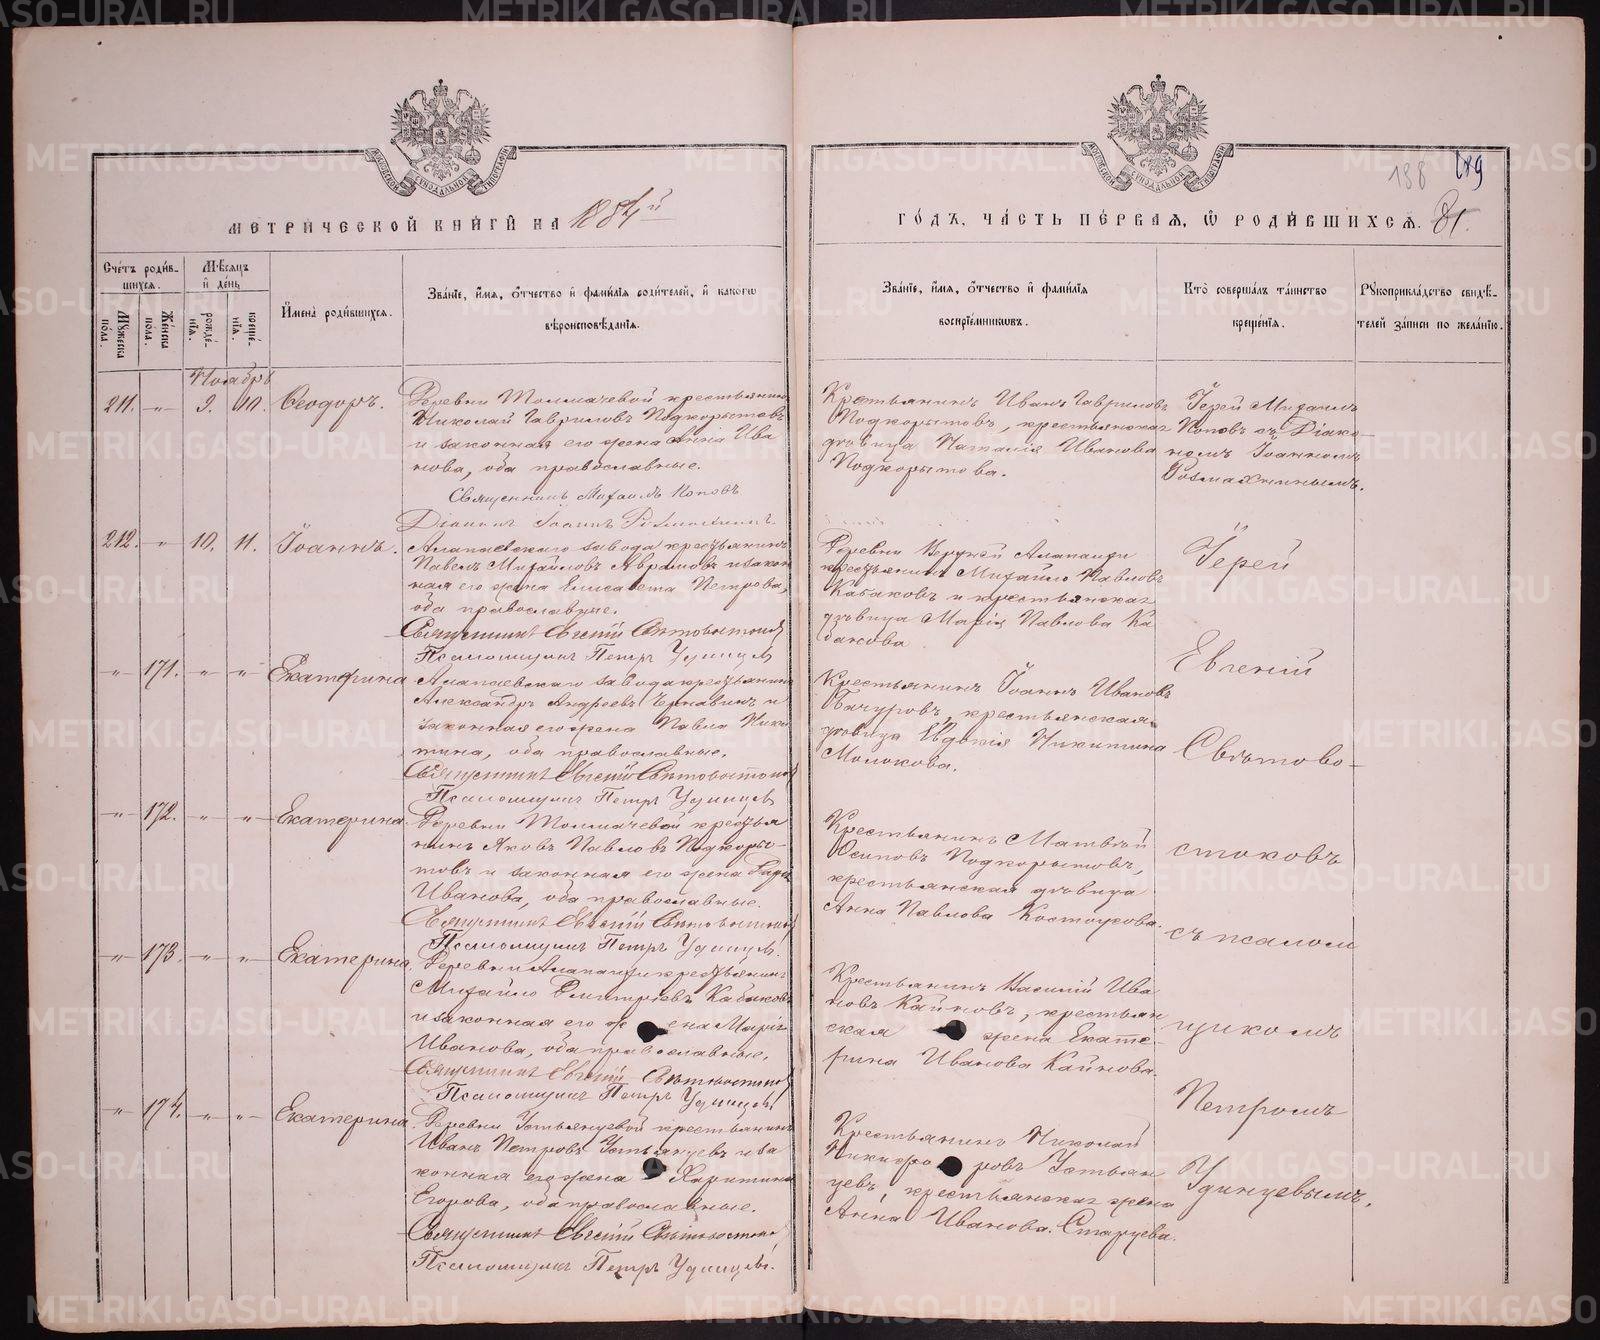 МЕТРИЧЕСКОЙ КНИГИ НА 1884й
Счетъ родив-
шихся.
Мужеска пола.
Женска пола.
Мѣсяцъ
и день
рожде-
нія.
креще-
нія.
Имена родившихся.
Званіе, имя, отчество и фамилія родителей, и какого
вѣроисповѣданія.
Ноябрь
211. " 9. 10. Ѳеодоръ.
Деревни Толмачевой крестьянинъ
Николай Гавриловъ Подкорытовъ
и законная его жена Анна Ива
нова, оба православные.
Священникъ Михаилъ Поповъ
Діаконъ Іоаннъ
212. " 10. 11. Іоаннъ.
Алапаевскаго завода крестьянинъ
Павелъ Михайловъ Абрамовъ и закон
ная его жена Елисавета Петрова,
оба православные.
Священникъ Евгеній Свѣтовостоковъ
Псаломщикъ Петръ Удинцевъ
" 171. " " Екатерина
Алапаевскаго завода крестьянинъ
Александръ Андреевъ Чернавинъ и
законная его жена Павла Ники
тина, оба православные.
Священникъ Евгеній Свѣтовостоковъ
Псаломщикъ Петръ Удинцевъ
" 172. " " Екатерина.
Деревни Толмачевой крестья
нинъ Яковъ Павловъ Подкоры-
товъ и законная его жена
Иванова, оба православные.
Священникъ Евгеній Свѣтовостоковъ
Псаломщикъ Петръ Удинцевъ
" 173. " " Екатерина.
Деревни Алапаихи крестьянинъ
Михайло Дмитріевъ Кабаковъ
и законная его жена Марія
Иванова, оба православные.
Священникъ Евгеній Свѣтовостоковъ
Псаломщикъ Петръ Удинцевъ
" 174. " " Екатерина.
Деревни Устьянцевой крестьянинъ
Иванъ Петровъ Устьянцевъ и за
конная его жена Харитина
Егорова, оба православные.
Священникъ Евгеній Свѣтовостоковъ
Псаломщикъ Петръ Удинцевъ.
188 189
ГОДЪ, ЧАСТЬ ПЕРВАЯ, Ѿ РОДИВШИХСЯ. 81.
Званіе, имя, отчество и фамилія
воспріемниковъ.
Кто совершалъ таинство
крещенія.
Рукоприкладство свидѣ-
телей записи по желанію.
Крестьянинъ Иванъ Гавриловъ
Подкорытовъ, крестьянская
дѣвица Наталія Иванова
Подкорытова.
Іерей Михаилъ
Поповъ съ Діако-
номъ Іоанномъ
Размахнинымъ.
Деревни Верхней Алапаихи
крестьянинъ Михайло Павловъ
Кабаковъ и крестьянская
дѣвица Марія Павлова Ка
бакова
Крестьянинъ Іоаннъ Ивановъ
Бачуровъ, крестьянская
дѣвица Евдокія Никитина
Молокова.
Крестьянинъ Матвѣй
Осиповъ Подкорытовъ,
крестьянская дѣвица
Анна Павлова Костоусова.
Крестьянинъ Василій Ива
новъ Кайновъ, крестьян
ская жена Екате-
рина Иванова Кайнова.
Крестьянинъ Николай
Никифоровъ Устьян
цевъ, крестьянская жена
Анна Иванова Старцева.
Іерей
Евгеній
Свѣтово-
стоковъ
съ псалом
щикомъ
Петромъ
Удинцевымъ.
МОСКОВСКОЙ СѴНОДАЛЬНОЙ ТИПОГРАФІИ
МОСКОВСКОЙ СѴНОДАЛЬНОЙ ТИПОГРАФІИ
METRIKI.GASO-URAL.RU